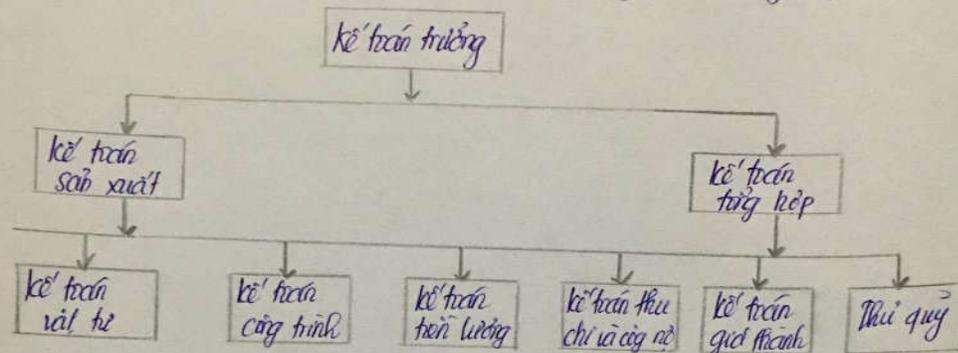 Kế toán trưởng
kế toán
sản xuất
kế toán
tổng hợp
kế toán
vật tư
kế toán
công trình
kế toán
tiền lương
kế toán thu
chi và công nợ
kế toán
giá thành
Thủ quỹ